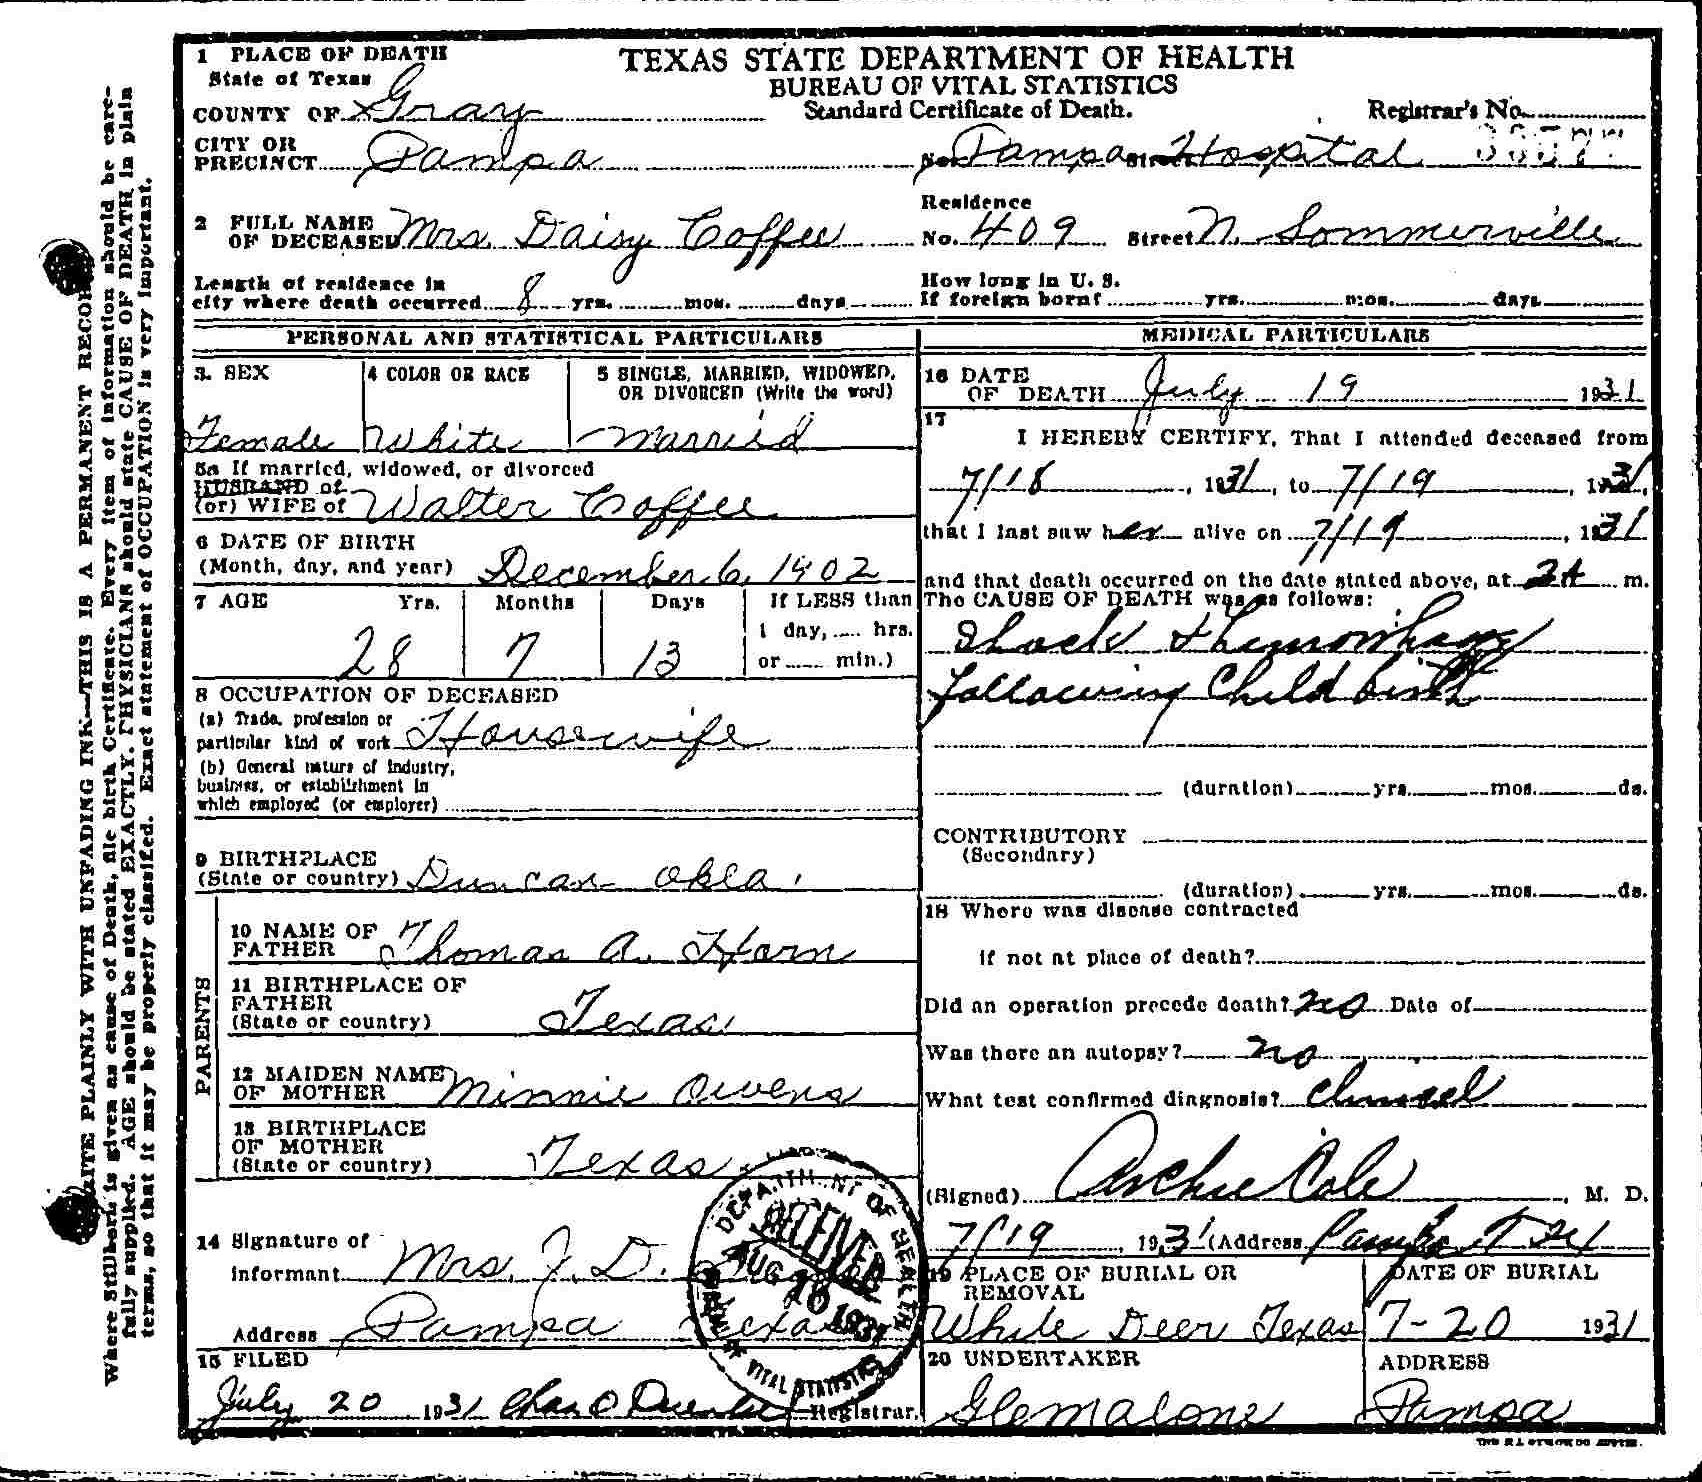 1 PLACE OF DEATH
State of Texas
COUNTY OF Gray
CITY OR
PRECINCT Pampa
TEXAS STATE DEPARTMENT OF HEALTH
BUREAU OF VITAL STATISTICS
Standard Certificate of Death.
Registrar's No.
No. Pampa Street Hospital
2 FULL NAME
OF DECEASED Mrs. Daisy Coffee
Residence
No. 409 Street N. Sommerville
Length of residence in
city where death occurred 8 yrs. mos. days
How long in U. S.
If foreign born? yrs. mos. days
PERSONAL AND STATISTICAL PARTICULARS
3. SEX
Female
4 COLOR OR RACE
White
5 SINGLE, MARRIED, WIDOWED,
OR DIVORCED (Write the word)
Married
5a If married, widowed, or divorced
HUSBAND of
(or) WIFE of Walter Coffee
6 DATE OF BIRTH
(Month, day, and year) December 6, 1902
7 AGE Yrs. Months Days If LESS than
1 day, hrs.
28 7 13 or min.)
8 OCCUPATION OF DECEASED
(a) Trade, profession or
particular kind of work Housewife
(b) General nature of industry,
business, or establishment in
which employed (or employer)
9 BIRTHPLACE
(State or country) Duncan Okla.
PARENTS
10 NAME OF
FATHER Thomas A. Horn
11 BIRTHPLACE OF
FATHER
(State or country) Texas
12 MAIDEN NAME
OF MOTHER Minnie Owens
13 BIRTHPLACE
OF MOTHER
(State or country) Texas
14 Signature of
Informant Mrs. J. D.
Address Pampa Texas
15 FILED
July 20 1931 Chas O Registrar.
DEPARTMENT OF HEALTH
RECEIVED
AUG 10 1931
BUREAU OF VITAL STATISTICS
MEDICAL PARTICULARS
16 DATE
OF DEATH July 19 1931
17
I HEREBY CERTIFY, That I attended deceased from
7/18, 1931, to 7/19, 1931,
that I last saw her alive on 7/19, 1931
and that death occurred on the date stated above, at 2A m.
The CAUSE OF DEATH was as follows:
Shock & Hemorrhage
following Child birth
(duration) yrs. mos. ds.
CONTRIBUTORY
(Secondary)
(duration) yrs. mos. ds.
18 Where was disease contracted
if not at place of death?
Did an operation precede death? no Date of
Was there an autopsy? no
What test confirmed diagnosis? clinical
(Signed) Archie Cole, M. D.
7/19, 1931 (Address Pampa Tex
19 PLACE OF BURIAL OR
REMOVAL
White Deer Texas
DATE OF BURIAL
7-20 1931
20 UNDERTAKER
G C Malone
ADDRESS
Pampa
WRITE PLAINLY WITH UNFADING INK—THIS IS A PERMANENT RECORD
Where Stillborn is given as cause of Death, file birth Certificate. Every item of information should be care-
fully supplied. AGE should be stated EXACTLY. PHYSICIANS should state CAUSE OF DEATH in plain
terms, so that it may be properly classifed. Exact statement of OCCUPATION is very important.